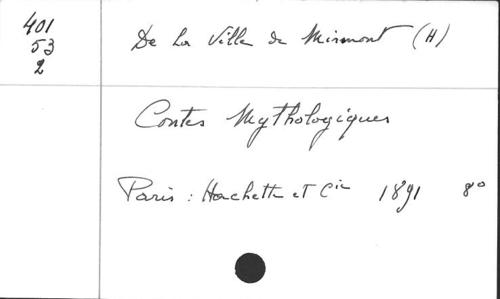 401
53
2
De La Ville de Mirmont (H)
Contes Mythologiques
Paris : Hachette et Cie 1891 8º